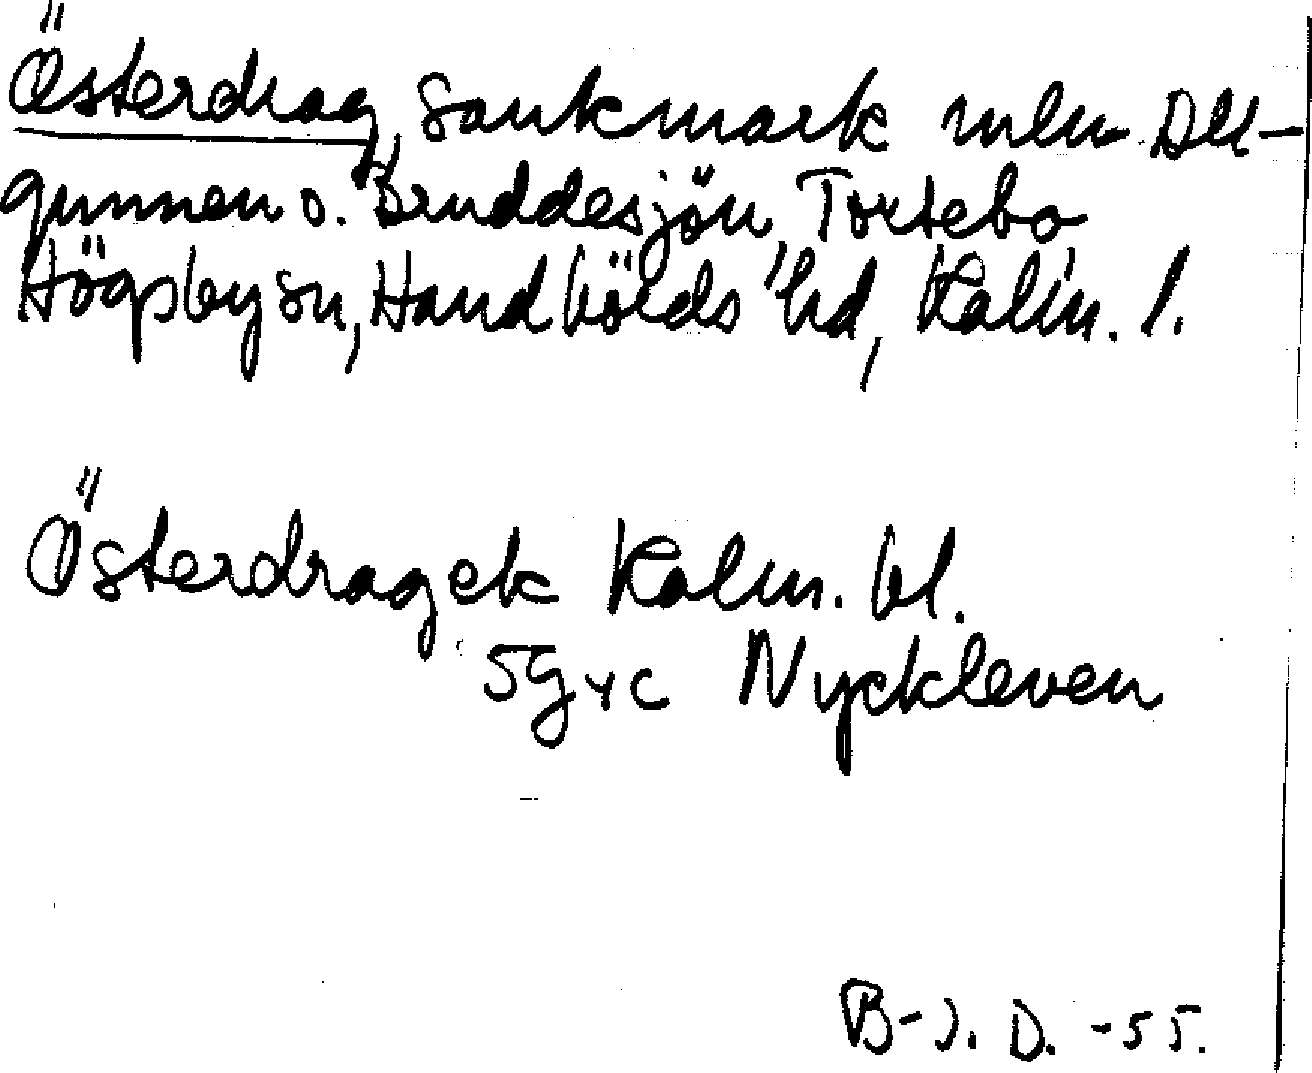 Österdrag, Sankmark mlm Däl-
gunnen o. Bruddesjön, Tortebo
Högsby sn, Handbölds hd, Kalm. l.
Österdraget Kalm. bl.
5G4c Nyckleven
B-J. D. -55.